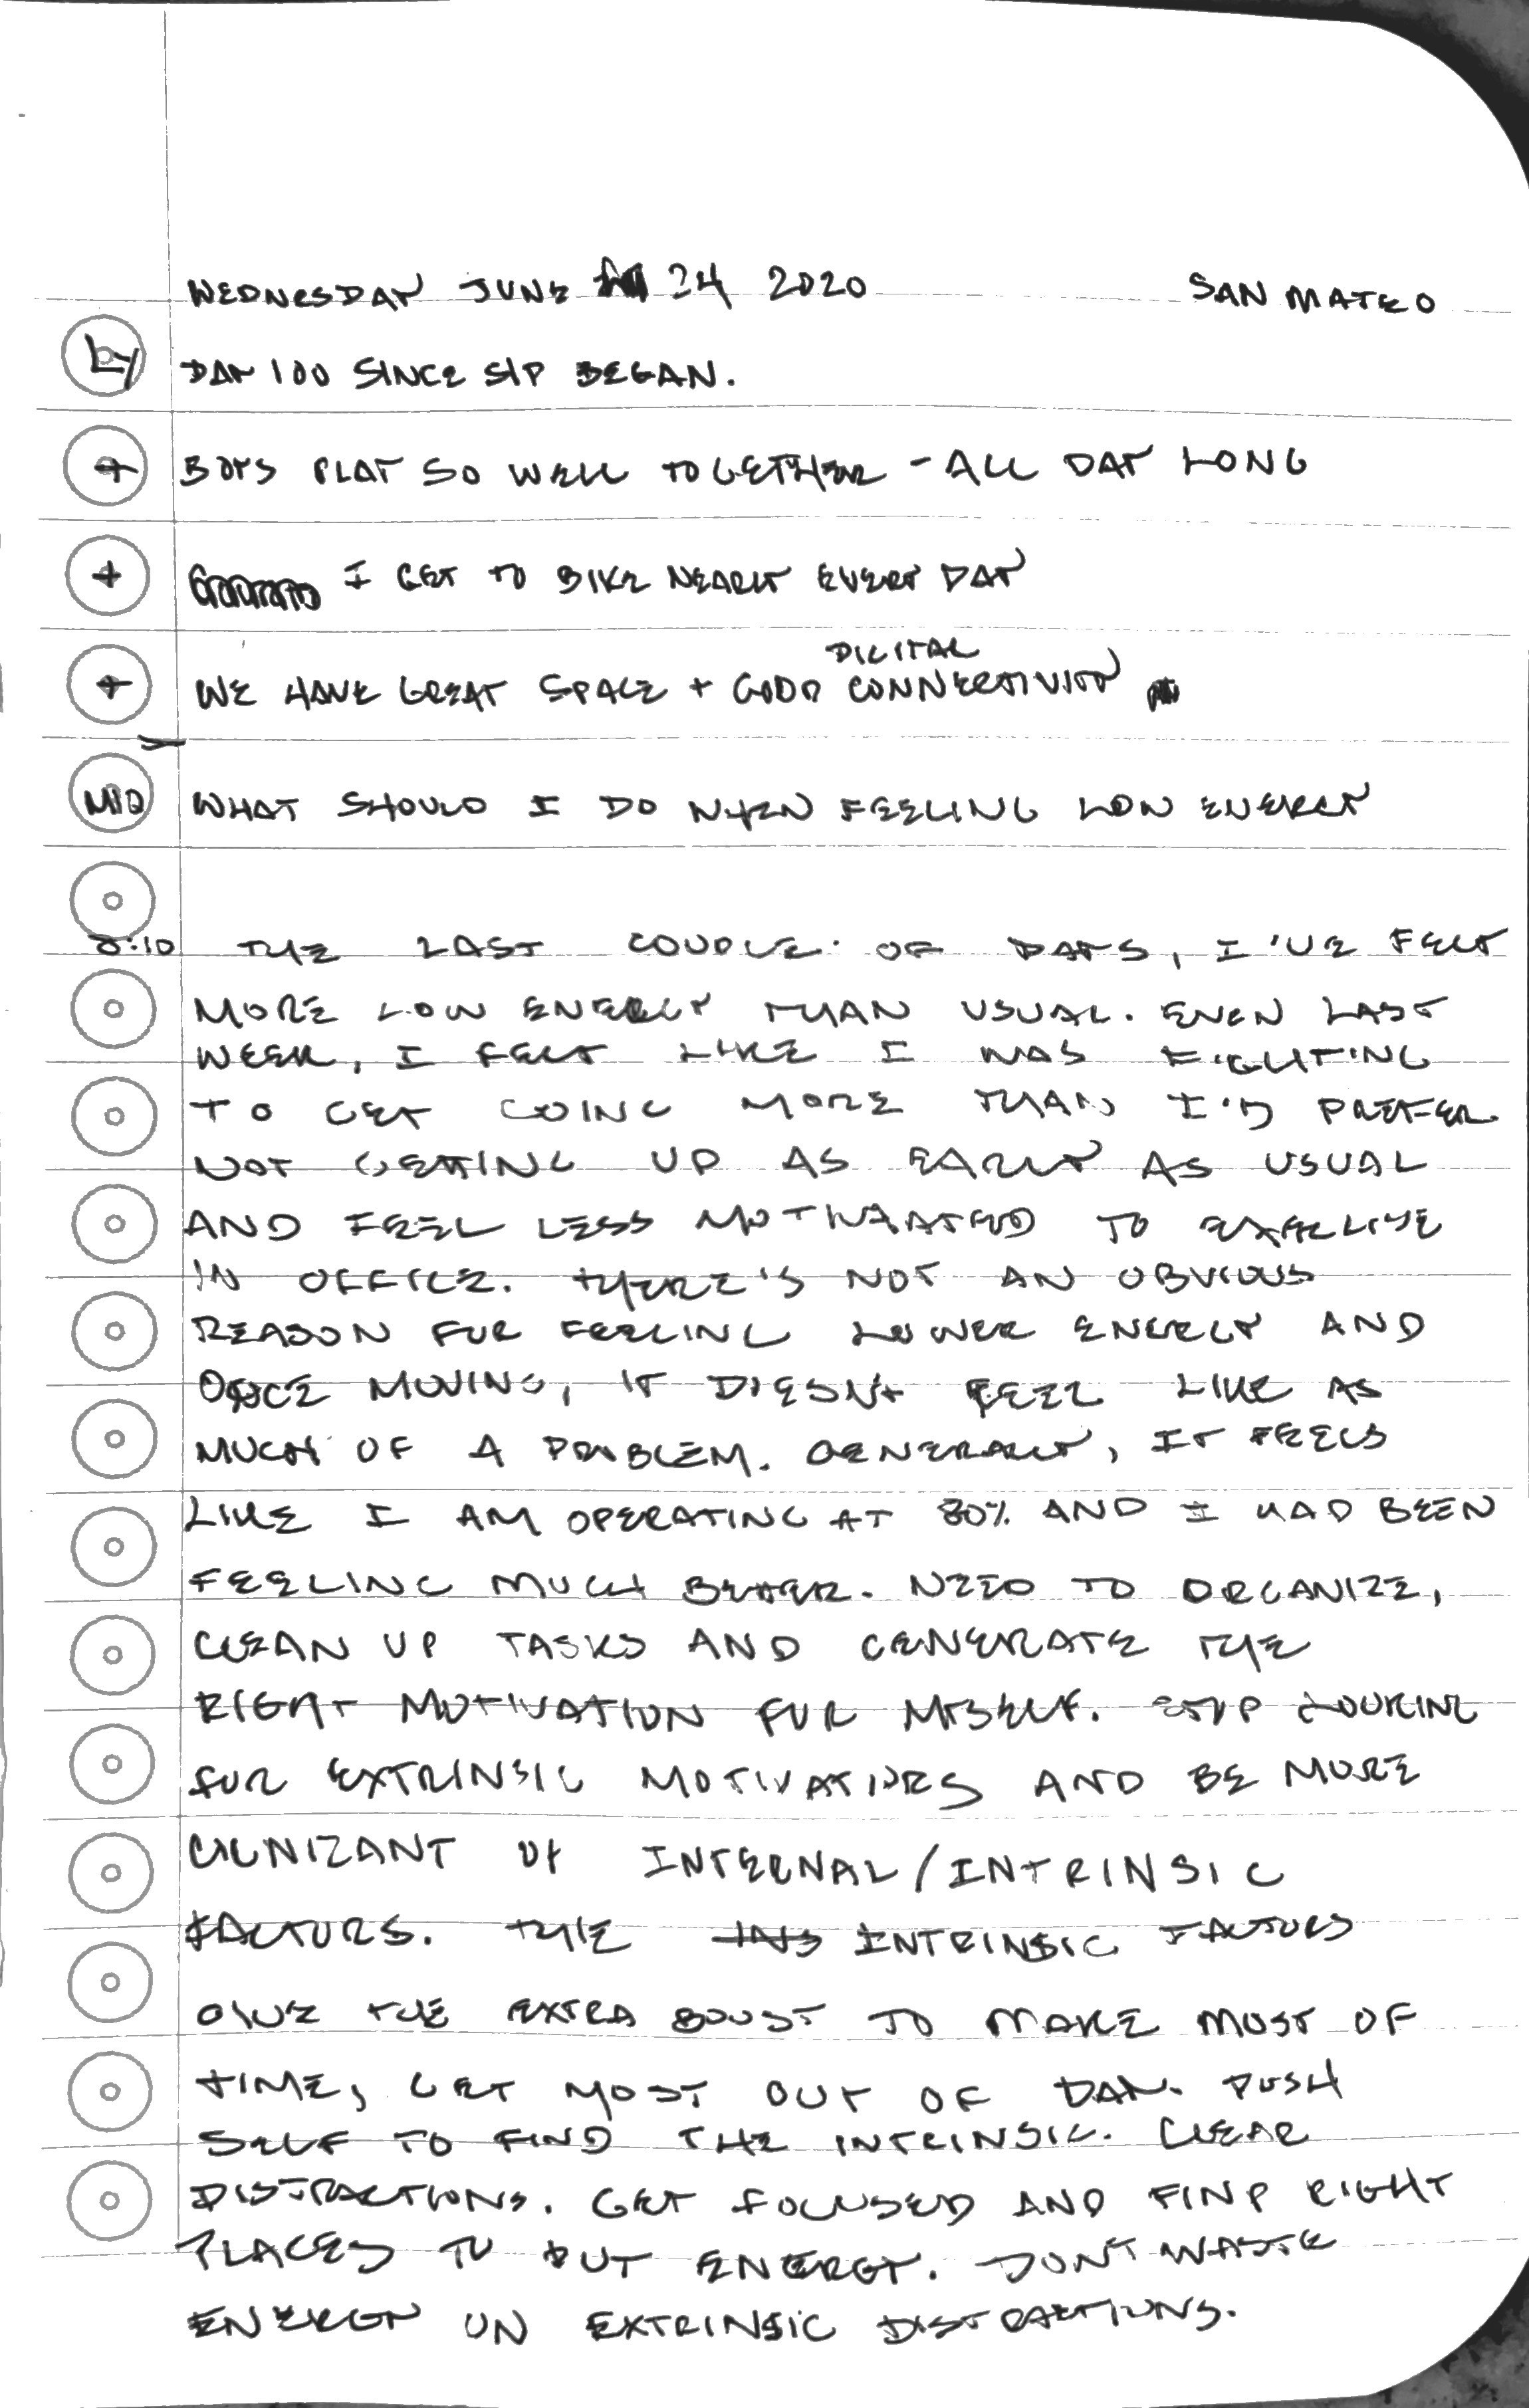 WEDNESDAY JUNE 24 2020 SAN MATEO
LY DAY 100 SINCE SIP BEGAN.
+ BOYS PLAY SO WELL TOGETHER - ALL DAY LONG
+ I GET TO BIKE NEARLY EVERY DAY
DIGITAL
+ WE HAVE GREAT SPACE + GOOD CONNECTIVITY
MIQ WHAT SHOULD I DO WHEN FEELING LOW ENERGY
8:10 THE LAST COUPLE OF DAYS, I'VE FELT
MORE LOW ENERGY THAN USUAL. EVEN LAST
WEEK, I FELT LIKE I WAS FIGHTING
TO GET GOING MORE THAN I'D PREFER
NOT GETTING UP AS EARLY AS USUAL
AND FEEL LESS MOTIVATED TO EXERCISE
IN OFFICE. THERE'S NOT AN OBVIOUS
REASON FOR FEELING LOWER ENERGY AND
ONCE MOVING, IT DOESN'T FEEL LIKE AS
MUCH OF A PROBLEM. GENERALLY, IT FEELS
LIKE I AM OPERATING AT 80% AND I HAD BEEN
FEELING MUCH BETTER. NEED TO ORGANIZE,
CLEAN UP TASKS AND GENERATE THE
RIGHT MOTIVATION FOR MYSELF. STOP LOOKING
FOR EXTRINSIC MOTIVATORS AND BE MORE
COGNIZANT OF INTERNAL/INTRINSIC
FACTORS. THE INTRINSIC FACTORS
GIVE THE EXTRA BOOST TO MAKE MOST OF
TIME, GET MOST OUT OF DAY. PUSH
SELF TO FIND THE INTRINSIC. CLEAR
DISTRACTIONS. GET FOCUSED AND FIND RIGHT
PLACES TO PUT ENERGY. DON'T WASTE
ENERGY ON EXTRINSIC DISTRACTIONS.